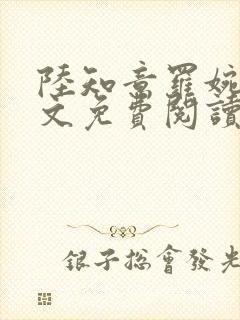 陸知章羅婉
文免費閱讀
銀子總會發光